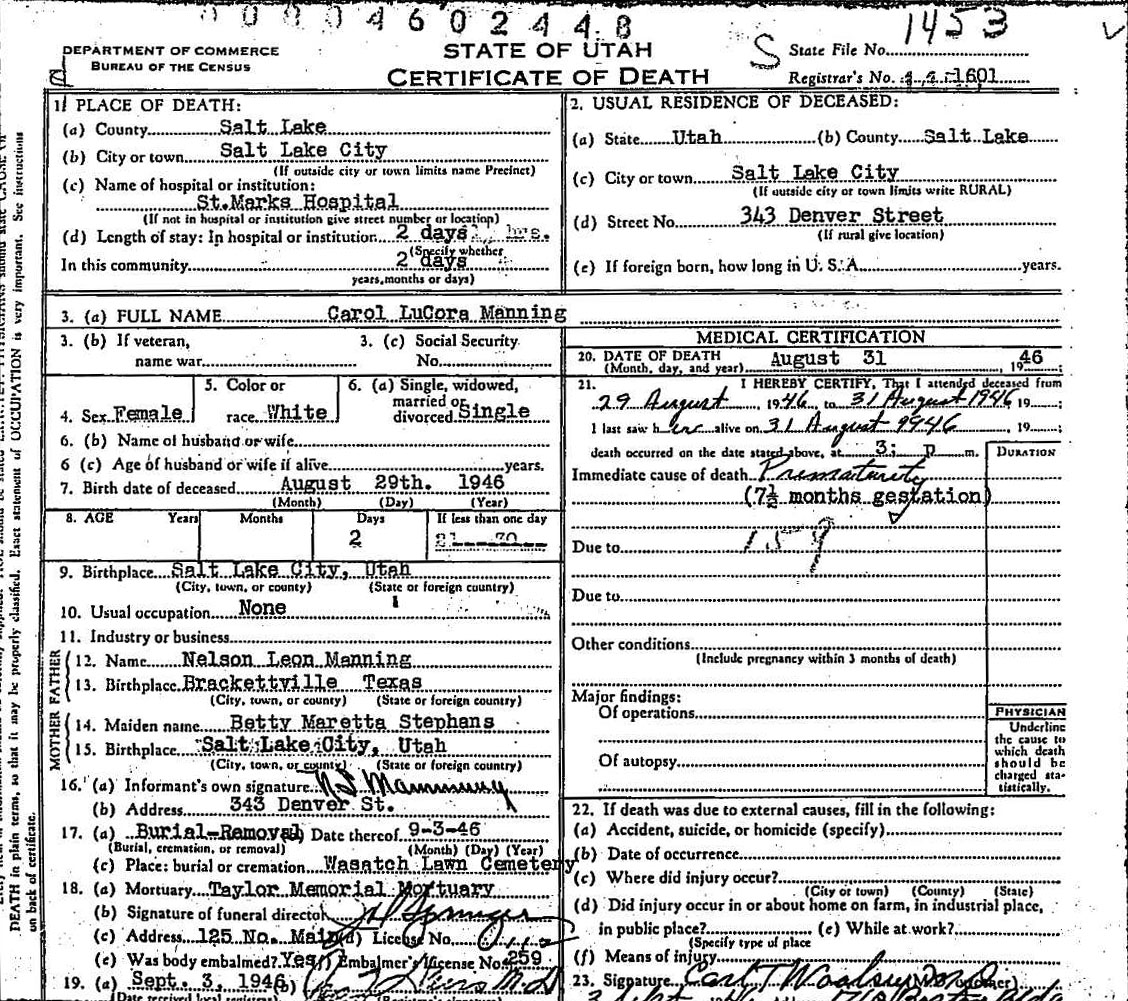 0 0 8 0 4 6 0 2 4 4 8
1453
DEPARTMENT OF COMMERCE
BUREAU OF THE CENSUS
STATE OF UTAH
CERTIFICATE OF DEATH
S
State File No.
Registrar's No. 1601
1. PLACE OF DEATH:
(a) County Salt Lake
(b) City or town Salt Lake City
(If outside city or town limits name Precinct)
(c) Name of hospital or institution:
St.Marks Hospital
(If not in hospital or institution give street number or location)
(d) Length of stay: In hospital or institution 2 days hrs.
(Specify whether
In this community 2 days
years, months or days)
2. USUAL RESIDENCE OF DECEASED:
(a) State Utah (b) County Salt Lake
(c) City or town Salt Lake City
(If outside city or town limits write RURAL)
(d) Street No. 343 Denver Street
(If rural give location)
(e) If foreign born, how long in U. S. A. years.
3. (a) FULL NAME Carol LuCora Manning
3. (b) If veteran,
name war
3. (c) Social Security
No.
4. Sex Female
5. Color or
race White
6. (a) Single, widowed,
married or
divorced Single
6. (b) Name of husband or wife
6 (c) Age of husband or wife if alive years.
7. Birth date of deceased August 29th. 1946
(Month) (Day) (Year)
8. AGE Years Months Days If less than one day
2
9. Birthplace Salt Lake City, Utah
(City, town, or county) (State or foreign country)
10. Usual occupation None
11. Industry or business
FATHER
12. Name Nelson Leon Manning
13. Birthplace Brackettville Texas
(City, town, or county) (State or foreign country)
MOTHER
14. Maiden name Betty Maretta Stephans
15. Birthplace Salt Lake City, Utah
(City, town, or county) (State or foreign country)
16. (a) Informant's own signature
(b) Address 343 Denver St.
17. (a) Burial-Removal Date thereof 9-3-46
(Burial, cremation, or removal) (Month) (Day) (Year)
(c) Place: burial or cremation Wasatch Lawn Cemetery
18. (a) Mortuary Taylor Memorial Mortuary
(b) Signature of funeral director
(c) Address 125 No. Main (d) License No.
(e) Was body embalmed? Yes (f) Embalmer's License No. 259
19. (a) Sept. 3, 1946 (b)
MEDICAL CERTIFICATION
20. DATE OF DEATH August 31 19 46
(Month, day, and year)
21. I HEREBY CERTIFY, That I attended deceased from
29 August 1946 to 31 August 1946 19 ;
I last saw her alive on 31 August 1946 , 19 ;
death occurred on the date stated above, at 3: p m.
DURATION
Immediate cause of death Prematurity
(7½ months gestation)
Due to 159
Due to
Other conditions
(Include pregnancy within 3 months of death)
Major findings:
Of operations
Of autopsy
PHYSICIAN
Underline
the cause to
which death
should be
charged sta-
tistically.
22. If death was due to external causes, fill in the following:
(a) Accident, suicide, or homicide (specify)
(b) Date of occurrence
(c) Where did injury occur?
(City or town) (County) (State)
(d) Did injury occur in or about home on farm, in industrial place,
in public place? (e) While at work?
(Specify type of place
(f) Means of injury
23. Signature
DEATH in plain terms, so that it may be properly classified. Exact statement of OCCUPATION is very important. See instructions
on back of certificate.